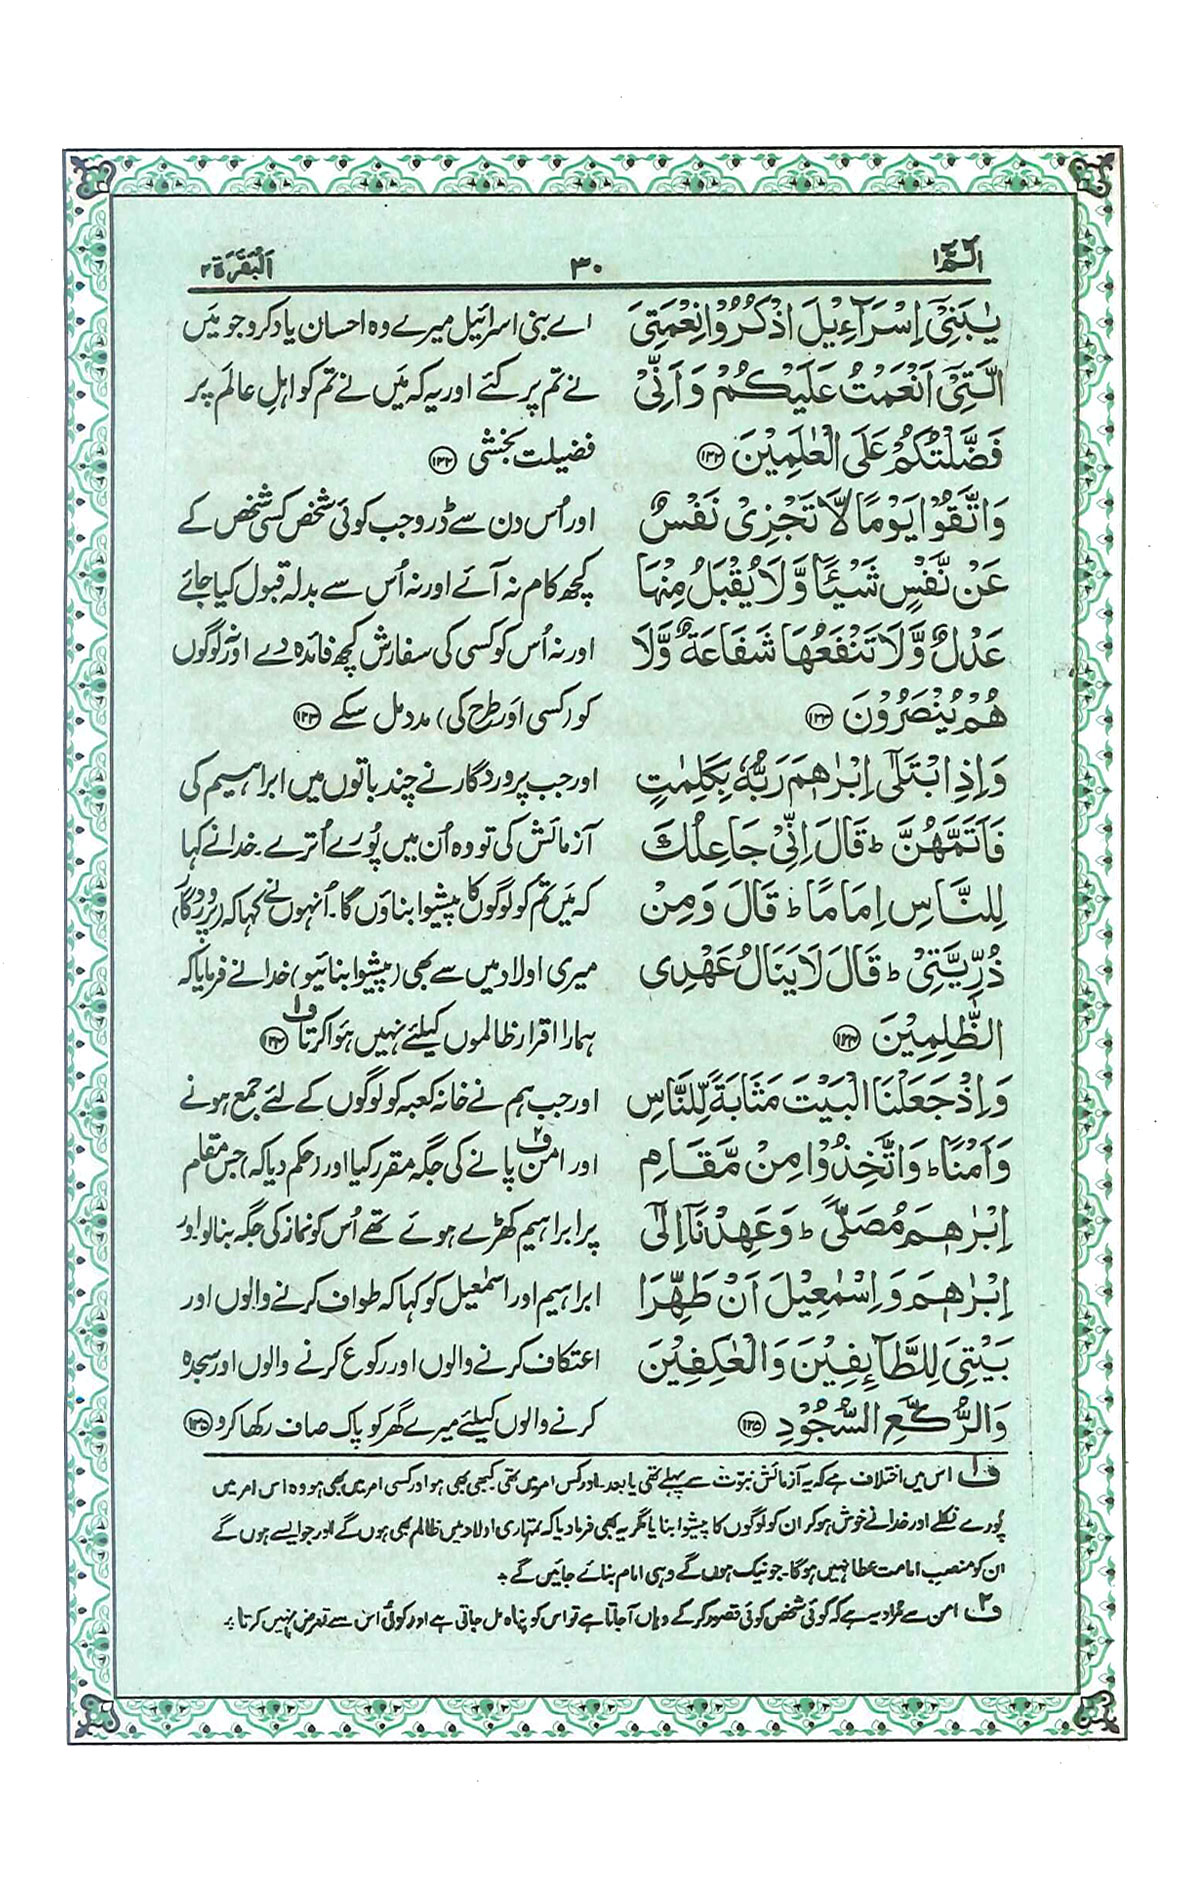 الٓمّٓ ١
٣٠
اَلْبَقَرَة ٢
يٰبَنِيْٓ اِسْرَآءِيْلَ اذْكُرُوْا نِعْمَتِيَ
الَّتِيْٓ اَنْعَمْتُ عَلَيْكُمْ وَاَنِّيْ
فَضَّلْتُكُمْ عَلَى الْعٰلَمِيْنَ ﴿١٢٢﴾
وَاتَّقُوْا يَوْمًا لَّا تَجْزِيْ نَفْسٌ
عَنْ نَّفْسٍ شَيْـًٔا وَّلَا يُقْبَلُ مِنْهَا
عَدْلٌ وَّلَا تَنْفَعُهَا شَفَاعَةٌ وَّلَا
هُمْ يُنْصَرُوْنَ ﴿١٢٣﴾
وَاِذِ ابْتَلٰٓى اِبْرٰهٖمَ رَبُّهٗ بِكَلِمٰتٍ
فَاَتَمَّهُنَّ ؕ قَالَ اِنِّيْ جَاعِلُكَ
لِلنَّاسِ اِمَامًا ؕ قَالَ وَمِنْ
ذُرِّيَّتِيْ ؕ قَالَ لَا يَنَالُ عَهْدِي
الظّٰلِمِيْنَ ﴿١٢٤﴾
وَاِذْ جَعَلْنَا الْبَيْتَ مَثَابَةً لِّلنَّاسِ
وَاَمْنًا ؕ وَاتَّخِذُوْا مِنْ مَّقَامِ
اِبْرٰهٖمَ مُصَلًّى ؕ وَعَهِدْنَآ اِلٰٓى
اِبْرٰهٖمَ وَاِسْمٰعِيْلَ اَنْ طَهِّرَا
بَيْتِيَ لِلطَّآئِفِيْنَ وَالْعٰكِفِيْنَ
وَالرُّكَّعِ السُّجُوْدِ ﴿١٢٥﴾
اے بنی اسرائیل میرے وہ احسان یاد کرو جو مَیں
نے تم پر کئے اور یہ کہ مَیں نے تم کو اہلِ عالَم پر
فضیلت بخشی ﴿۱۲۲﴾
اور اُس دن سے ڈرو جب کوئی شخص کسی شخص کے
کچھ کام نہ آئے اور نہ اُس سے بدلہ قبول کیا جائے
اور نہ اُس کو کسی کی سفارش کچھ فائدہ دے اور نہ لوگوں
کو (کسی اور طرح کی) مدد مل سکے ﴿۱۲۳﴾
اور جب پروردگار نے چند باتوں میں ابراہیم کی
آزمائش کی تو وہ اُن میں پُورے اُترے۔ خدا نے کہا
کہ مَیں تم کو لوگوں کا پیشوا بناؤں گا۔ اُنہوں نے کہا کہ (پروردگار)
میری اولاد میں سے بھی (پیشوا بنائیو) خدا نے فرمایا کہ
ہمارا اقرار ظالموں کیلئے نہیں ہوا کرتا ف۱ ﴿۱۲۴﴾
اور جب ہم نے خانہ کعبہ کو لوگوں کے لئے جمع ہونے
اور امن ف۲ پانے کی جگہ مقرر کیا اور (حکم دیا کہ) جس مقام
پر ابراہیم کھڑے ہوئے تھے اُس کو نماز کی جگہ بنا لو۔ اور
ابراہیم اور اسمٰعیل کو کہا کہ طواف کرنے والوں اور
اعتکاف کرنے والوں اور رکوع کرنے والوں اور سجدہ
کرنے والوں کیلئے میرے گھر کو پاک صاف رکھا کرو ﴿۱۲۵﴾
ف۱ اس میں اختلاف ہے کہ یہ آزمائش نبوّت سے پہلے تھی یا بعد۔ اور کس امر میں تھی۔ کبھی بھی ہو اور کسی امر میں بھی ہو وہ اس امر میں
پُورے نکلے اور خدا نے خوش ہو کر ان کو لوگوں کا پیشوا بنا یا مگر یہ بھی فرما دیا کہ تمہاری اولاد میں ظالم بھی ہوں گے اور جو ایسے ہوں گے
ان کو منصب امامت عطا نہیں ہوگا۔ جو نیک ہوں گے وہی امام بنائے جائیں گے ۔
ف۲ امن سے مُراد یہ ہے کہ کوئی شخص کوئی قصور کر کے وہاں آجاتا ہے تو اس کو پناہ مل جاتی ہے اور کوئی اس سے تعرض نہیں کرتا ۔